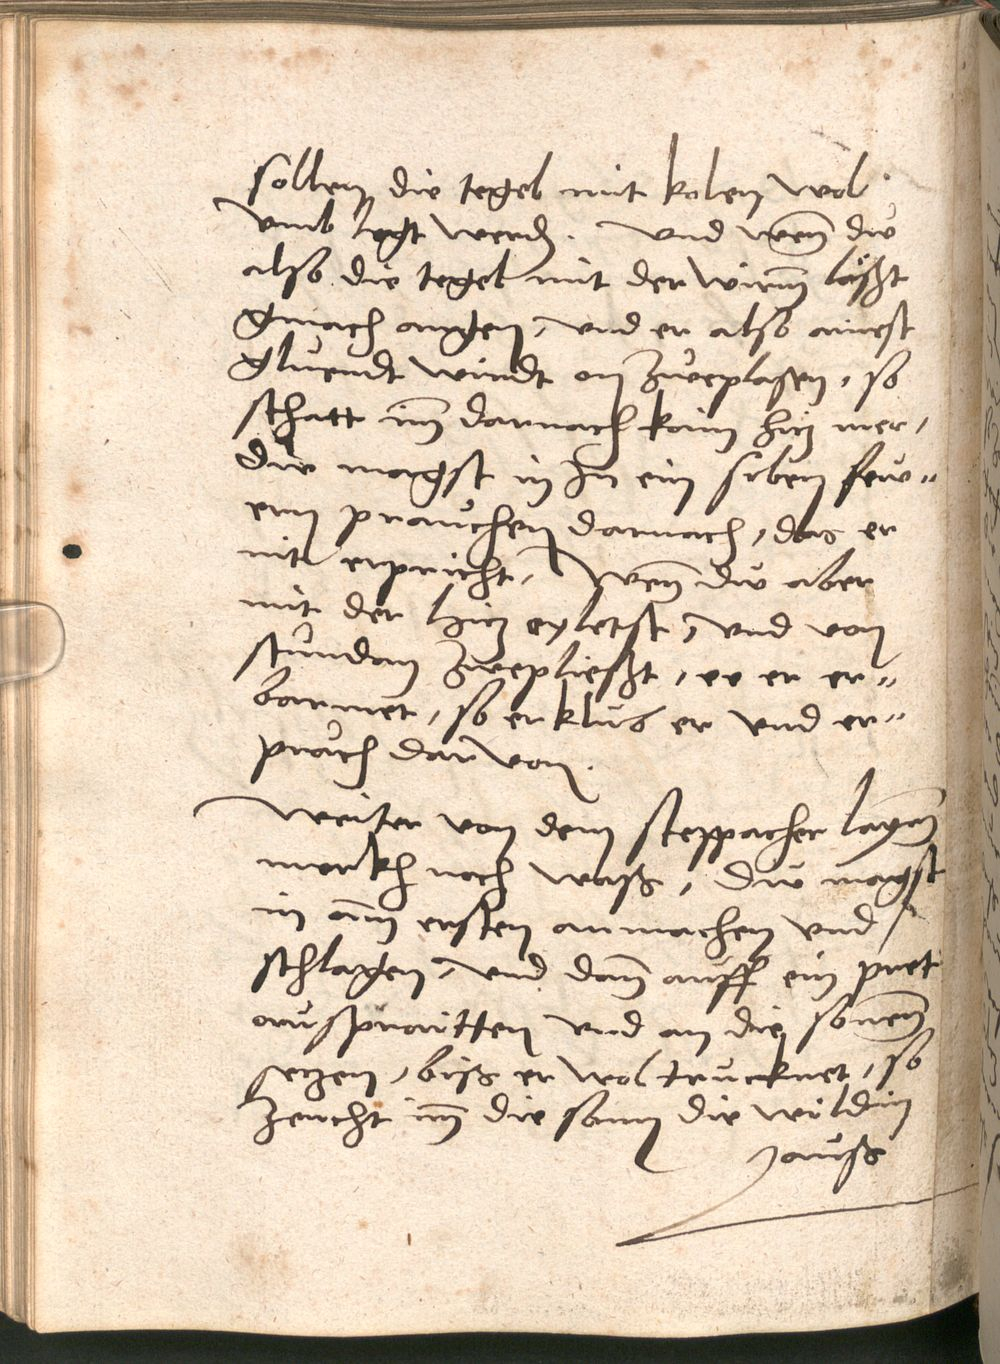 sollen die tegel mit kolen wol
vmb legt werden. vnd wenn du
also die tegel mit der wirm läßt
gmach angen, vnd er also ainest
gluendt wirdt on zueplasen, so
schatt im darnach kain hicz mer,
du magst in zu ein siben few"
ern prauchen darnach, das er
nit erpricht, Wenn du aber
mit der hicz eyletst, vnd von
stundan zuepließt, ee er er"
barmet, so erklub er vnd er"
präch dar von.
Weiter von dem steppacher laym
merkh noch waß, du magst
in am ersten anmachen vnd
schlagen, vnd dan auff ein pret
auspraitten vnd an die sonnen
seczen, biß er wol trucknet, so
zeucht im die sonn die wildin
auß